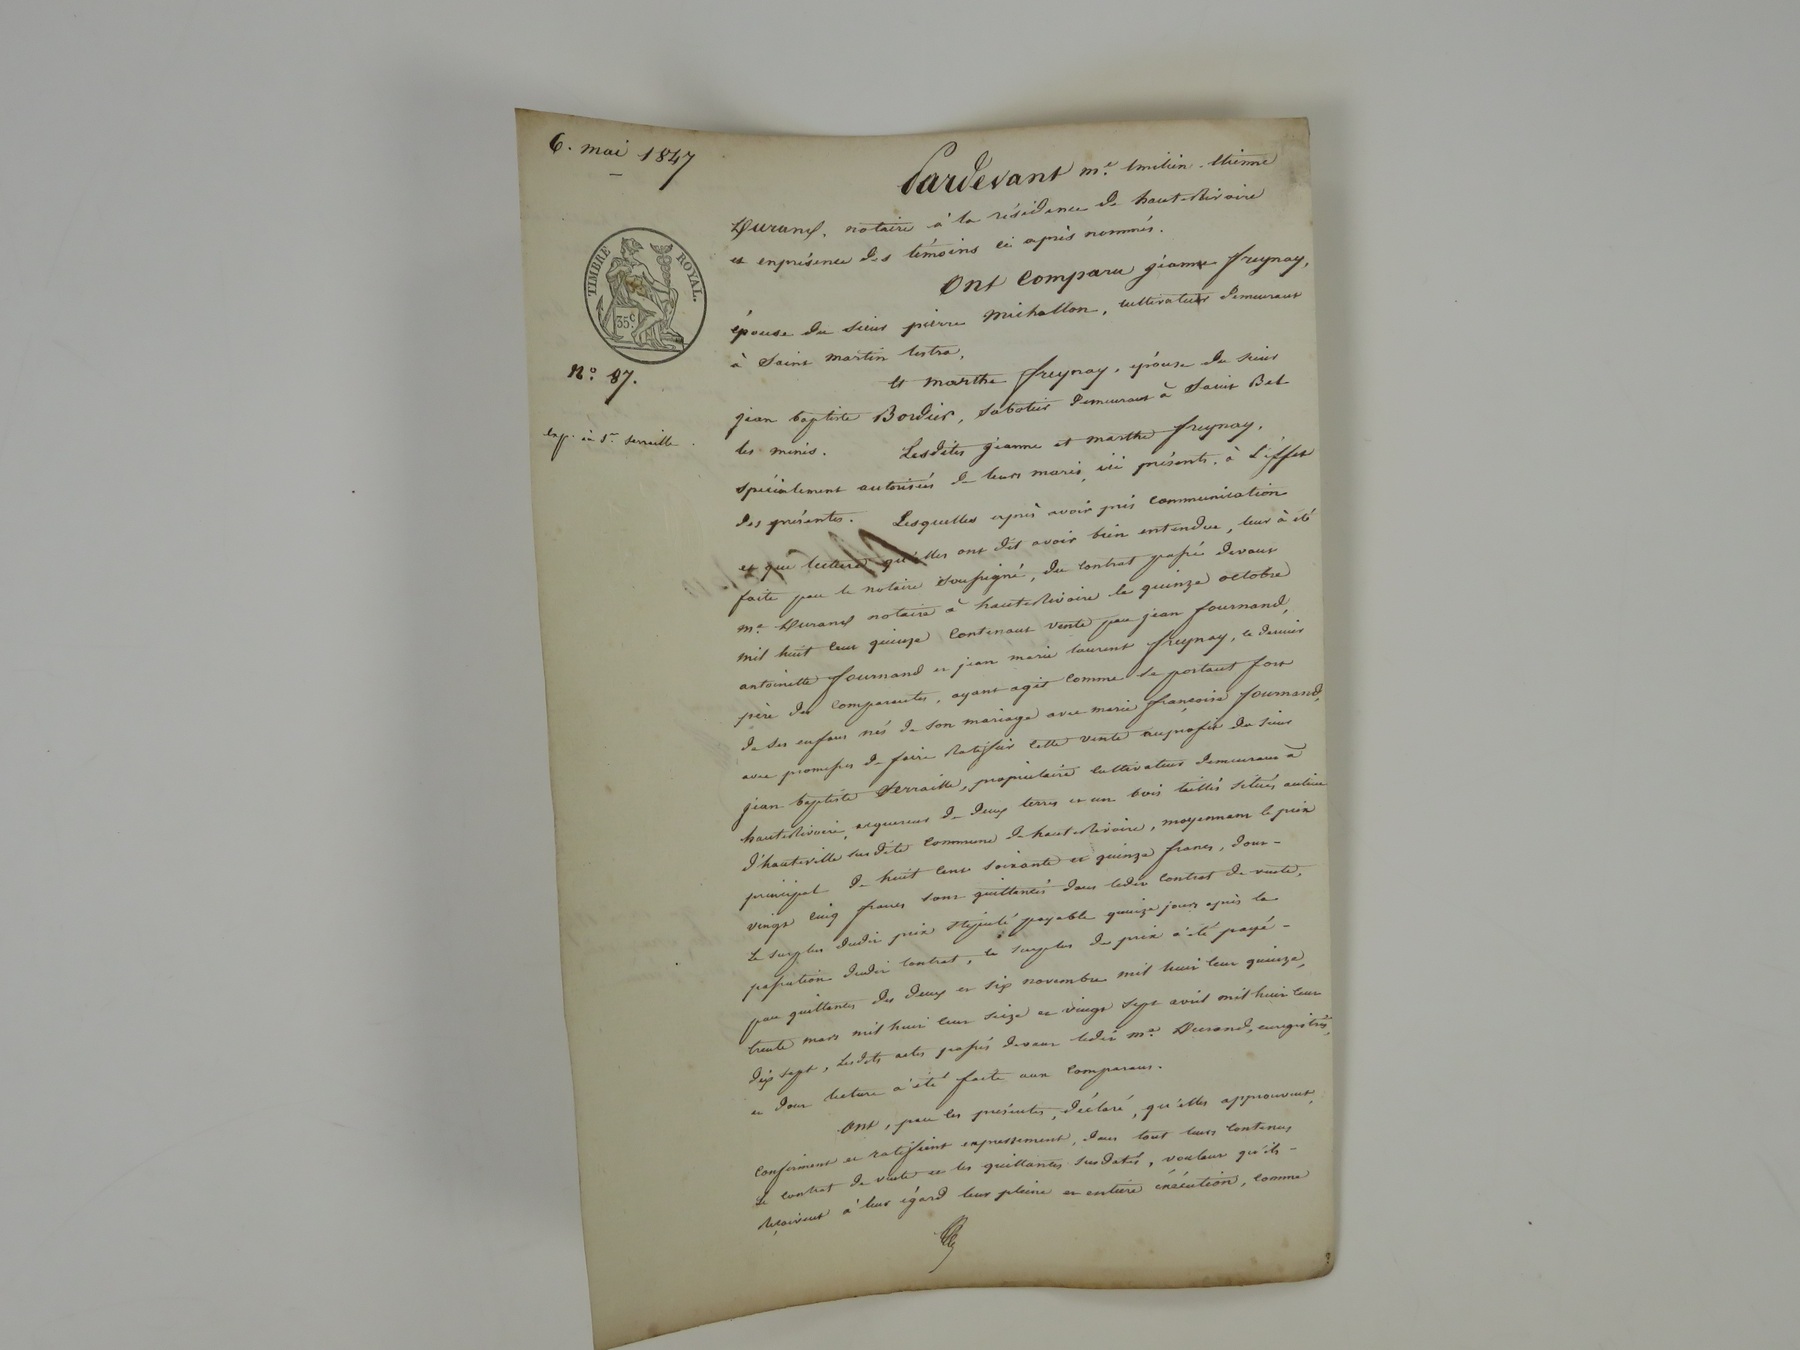 6. mai 1847
Pardevant me. émilien. étienne
Durand, notaire à la résidence de haute Rivoire
et enprésence des témoins ci après nommés.
TIMBRE ROYAL.
35c
Ont Comparu géanne freynay,
épouse du sieur pierre Michallon, cultivateur demeurant
à Saint Martin lestra,
No. 87.
Et marthe freynay, épouse du sieur
jean baptiste Bordier, sabotier demeurant à Saint Bel
les mines. Lesdites géanne et marthe freynay,
exp. à Sr. Serraille
spécialement autorisées de leurs maris, ici présents, à l'effet
des présentes. Lesquelles après avoir pris communication
et que lecture qu'elles ont dit avoir bien entendue, leur à été
faite par le notaire soussigné, du contrat passé devant
me. Durand notaire à haute Rivoire le quinze octobre
mil huit cent quinze contenant vente par jean fournand,
antoinette fournand et jean marie laurent freynay, ce dernier
père des comparantes, ayant agit comme se portant fort
de ses enfans nés de son mariage avec marie françoise fournand,
avec promesses de faire Ratifier cette vente auprofit du sieur
jean baptiste Serraille, propriétaire cultivateur demeurant à
haute Rivoire, acquereur de deux terres et un bois taillis situés au lieu
d'hauteville susdite commune de haute Rivoire, moyennant le prix
principal de huit cent soixante et quinze francs, dont-
vingt cinq francs sont quittancés dans ledit contrat de vente,
Le surplus dudit prix stipulé payable quinze jours après la
passation dudit contrat, le surplus du prix a été payé-
par quittances des deux et six novembre mil huit cent quinze,
trente mars mil huit cent seize et vingt sept avril mil huit cent
dix sept, Lesdits actes passés devant ledit me. Durand, enregistrés,
et dont lecture a été faite aux comparans.
Ont, par les présentes, déclaré, qu'elles approuvent,
confirment et ratifient expressément, dans tout leurs contenus
Le contrat de vente et les quittances susdatés, voulant qu'ils-
Reçoivent à leur égard leur pleine et entière exécution, comme